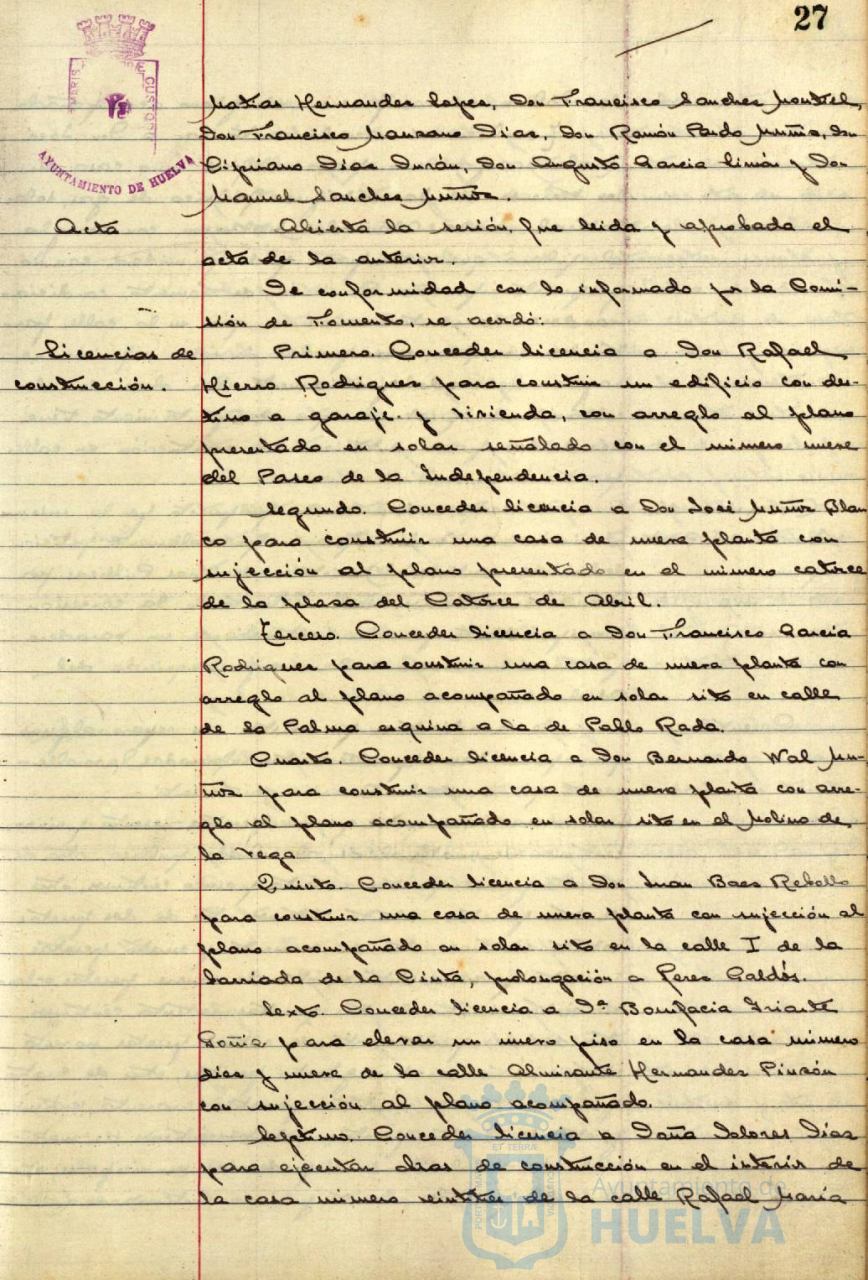 27
AYUNTAMIENTO DE HUELVA
Matias Hernandez Lopez, Don Francisco Sanchez Montiel,
Don Francisco Manzano Diaz, Don Ramón Pardo Muñiz, Don
Cipriano Diaz Durán, Don Augusto Garcia Limón y Don
Manuel Sanchez Muñoz.
Acta
Abierta la sesión, fue leida y aprobada el
acta de la anterior.
De conformidad con lo informado por la Comi-
sión de Fomento, se acordó:
Licencias de
construcción.
Primero. Conceder licencia a Don Rafael
Hierro Rodriguez para construir un edificio con des-
tino a garaje y vivienda, con arreglo al plano
presentado en solar señalado con el número nueve
del Paseo de la Independencia.
Segundo. Conceder licencia a Don José Muñoz Blan
co para construir una casa de nueva planta con
sujección al plano presentado en el número catorce
de la plaza del Catorce de Abril.
Tercero. Conceder licencia a Don Francisco Garcia
Rodriguez para construir una casa de nueva planta con
arreglo al plano acompañado en solar sito en calle
de la Palma esquina a la de Pablo Rada.
Cuarto. Conceder licencia a Don Bernardo Wal Mu-
ñoz para construir una casa de nueva planta con arre-
glo al plano acompañado en solar sito en el Molino de
la Vega
Quinto. Conceder licencia a Don Juan Baez Rebollo
para construir una casa de nueva planta con sujección al
plano acompañado en solar sito en la calle I de la
barriada de la Cinta, prolongación a Perez Galdós.
Sexto. Conceder licencia a Dª Bonifacia Iriarte
para elevar un nuevo piso en la casa número
diez y nueve de la calle Almirante Hernandez Pinzón
con sujección al plano acompañado.
Septimo. Conceder licencia a Doña Dolores Diaz
para ejecutar obras de construcción en el interior de
la casa número veintitres de la calle Rafael Maria
Ayuntamiento de
HUELVA